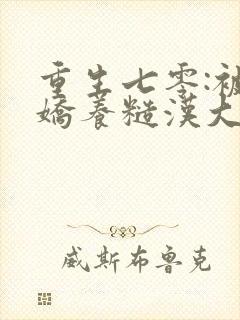 重生七零:被
嬌養糙漢大
威斯布魯克